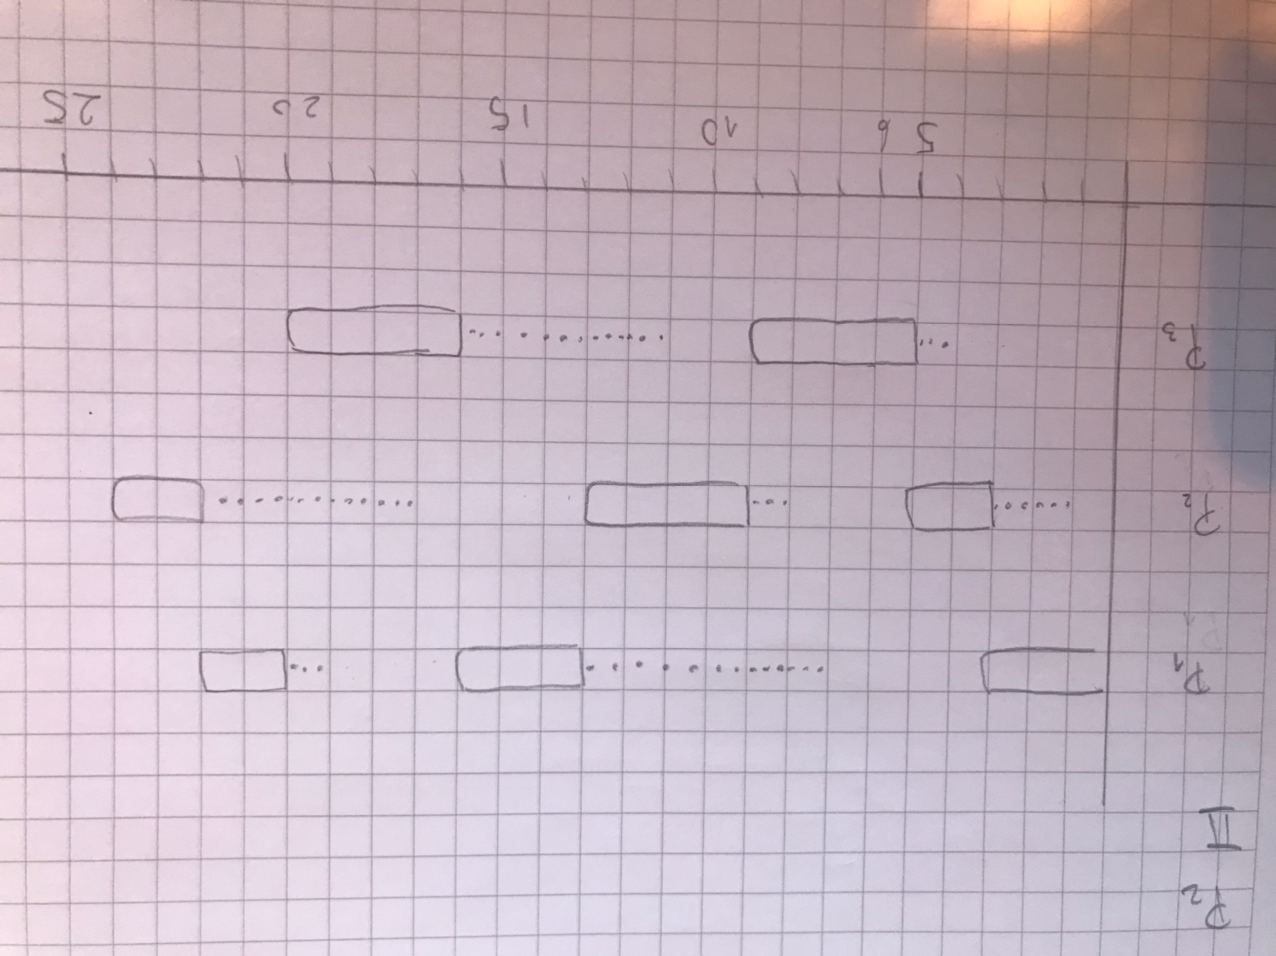 P2
II
P1
P2
P3
5 6 10 15 20 25